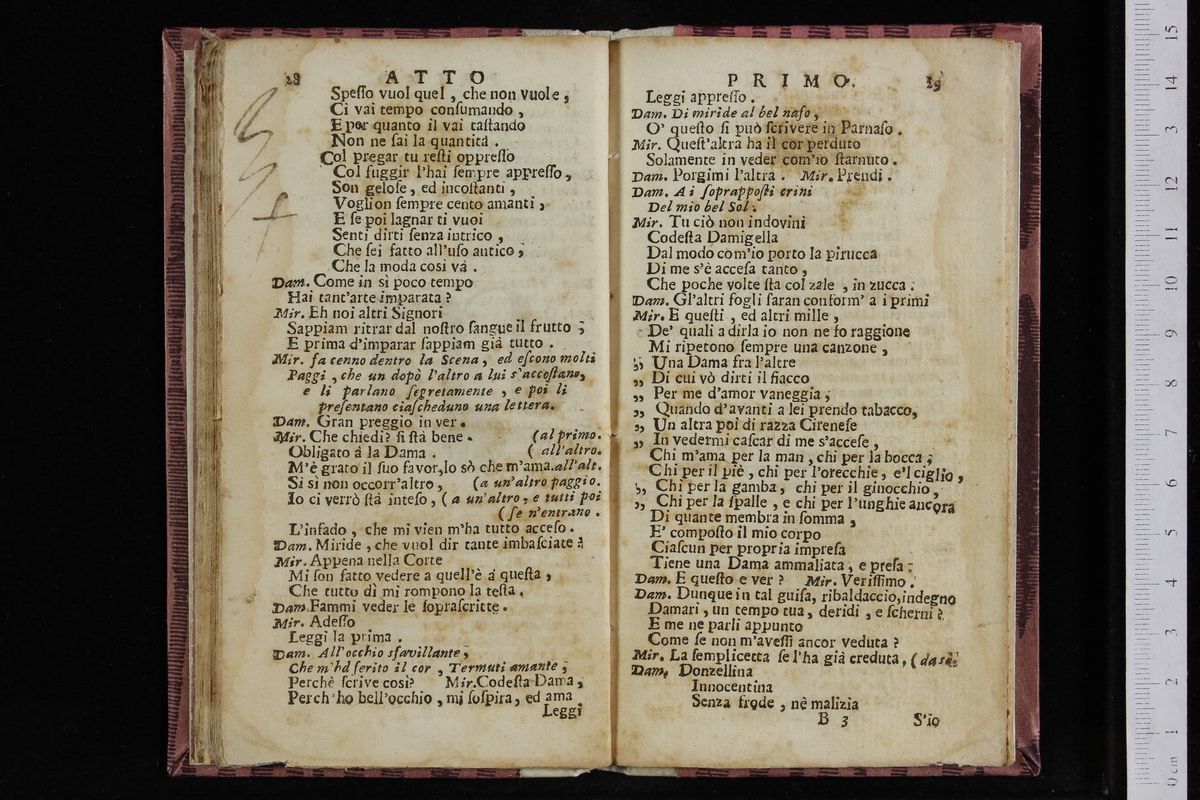 28 ATTO
Speſſo vuol quel, che non vuole,
Ci vai tempo conſumando,
E por quanto il vai taſtando
Non ne ſai la quantità.
Col pregar tu reſti oppreſſo
Col fuggir l'hai ſempre appreſſo,
Son geloſe, ed incoſtanti,
Voglion ſempre cento amanti,
E ſe poi lagnar ti vuoi
Senti dirti ſenza intrico,
Che ſei fatto all'uſo antico,
Che la moda così và.
Dam. Come in sì poco tempo
Hai tant'arte imparata?
Mir. Eh noi altri Signori
Sappiam ritrar dal noſtro ſangue il frutto;
E prima d'imparar ſappiam già tutto.
Mir. fa cenno dentro la Scena, ed eſcono molti
Paggi, che un dopò l'altro a lui s'accoſtano,
e li parlano ſegretamente, e poi li
preſentano ciaſcheduno una lettera.
Dam. Gran preggio in ver.
Mir. Che chiedi? ſi ſtà bene. (al primo.
Obligato à la Dama. ( all'altro.
M'è grato il ſuo favor,lo sò che m'ama.all'alt.
Si si non occorr'altro, (a un'altro paggio.
Io ci verrò ſtà inteſo, (a un'altro, e tutti poi
(ſe n'entrano.
L'infado, che mi vien m'ha tutto acceſo.
Dam. Miride, che vuol dir tante imbaſciate?
Mir. Appena nella Corte
Mi ſon fatto vedere a quell'è à queſta,
Che tutto dì mi rompono la teſta.
Dam.Fammi veder le ſopraſcritte.
Mir. Adeſſo
Leggi la prima.
Dam. All'occhio sfavillante,
Che m'hà ferito il cor, Termuti amante;
Perchè ſcrive così? Mir.Codeſta Dama,
Perch'ho bell'occhio, mi ſoſpira, ed ama
Leggi
PRIMO. 29
Leggi appreſſo.
Dam. Di miride al bel naſo,
O' queſto ſi può ſcrivere in Parnaſo.
Mir. Queſt'altra ha il cor perduto
Solamente in veder com'io ſtarnuto.
Dam. Porgimi l'altra. Mir. Prendi.
Dam. A i ſoprappoſti crini
Del mio bel Sol.
Mir. Tu ciò non indovini
Codeſta Damigella
Dal modo com'io porto la pirucca
Di me s'è acceſa tanto,
Che poche volte ſta col zale, in zucca.
Dam. Gl'altri fogli ſaran conform' a i primi
Mir. E queſti, ed altri mille,
De' quali a dirla io non ne fo raggione
Mi ripetono ſempre una canzone,
„ Una Dama fra l'altre
„ Di cui vò dirti il fiacco
„ Per me d'amor vaneggia,
„ Quando d'avanti a lei prendo tabacco,
„ Un altra poi di razza Cireneſe
„ In vedermi caſcar di me s'acceſe,
Chi m'ama per la man, chi per la bocca;
Chi per il piè, chi per l'orecchie, e'l ciglio,
„ Chi per la gamba, chi per il ginocchio,
„ Chi per la ſpalle, e chi per l'unghie ancora
Di quante membra in ſomma,
E' compoſto il mio corpo
Ciaſcun per propria impreſa
Tiene una Dama ammaliata, e preſa:
Dam. E queſto e ver? Mir. Veriſſimo.
Dam. Dunque in tal guiſa, ribaldaccio,indegno
Damari, un tempo tua, deridi, e ſcherni?
E me ne parli appunto
Come ſe non m'aveſſi ancor veduta?
Mir. La ſemplicetta ſe l'ha già creduta, (da sè.
Dam. Donzellina
Innocentina
Senza frode, nè malizia
B 3 S'io
15
14
13
12
11
10
9
8
7
6
5
4
3
2
1
0 cm